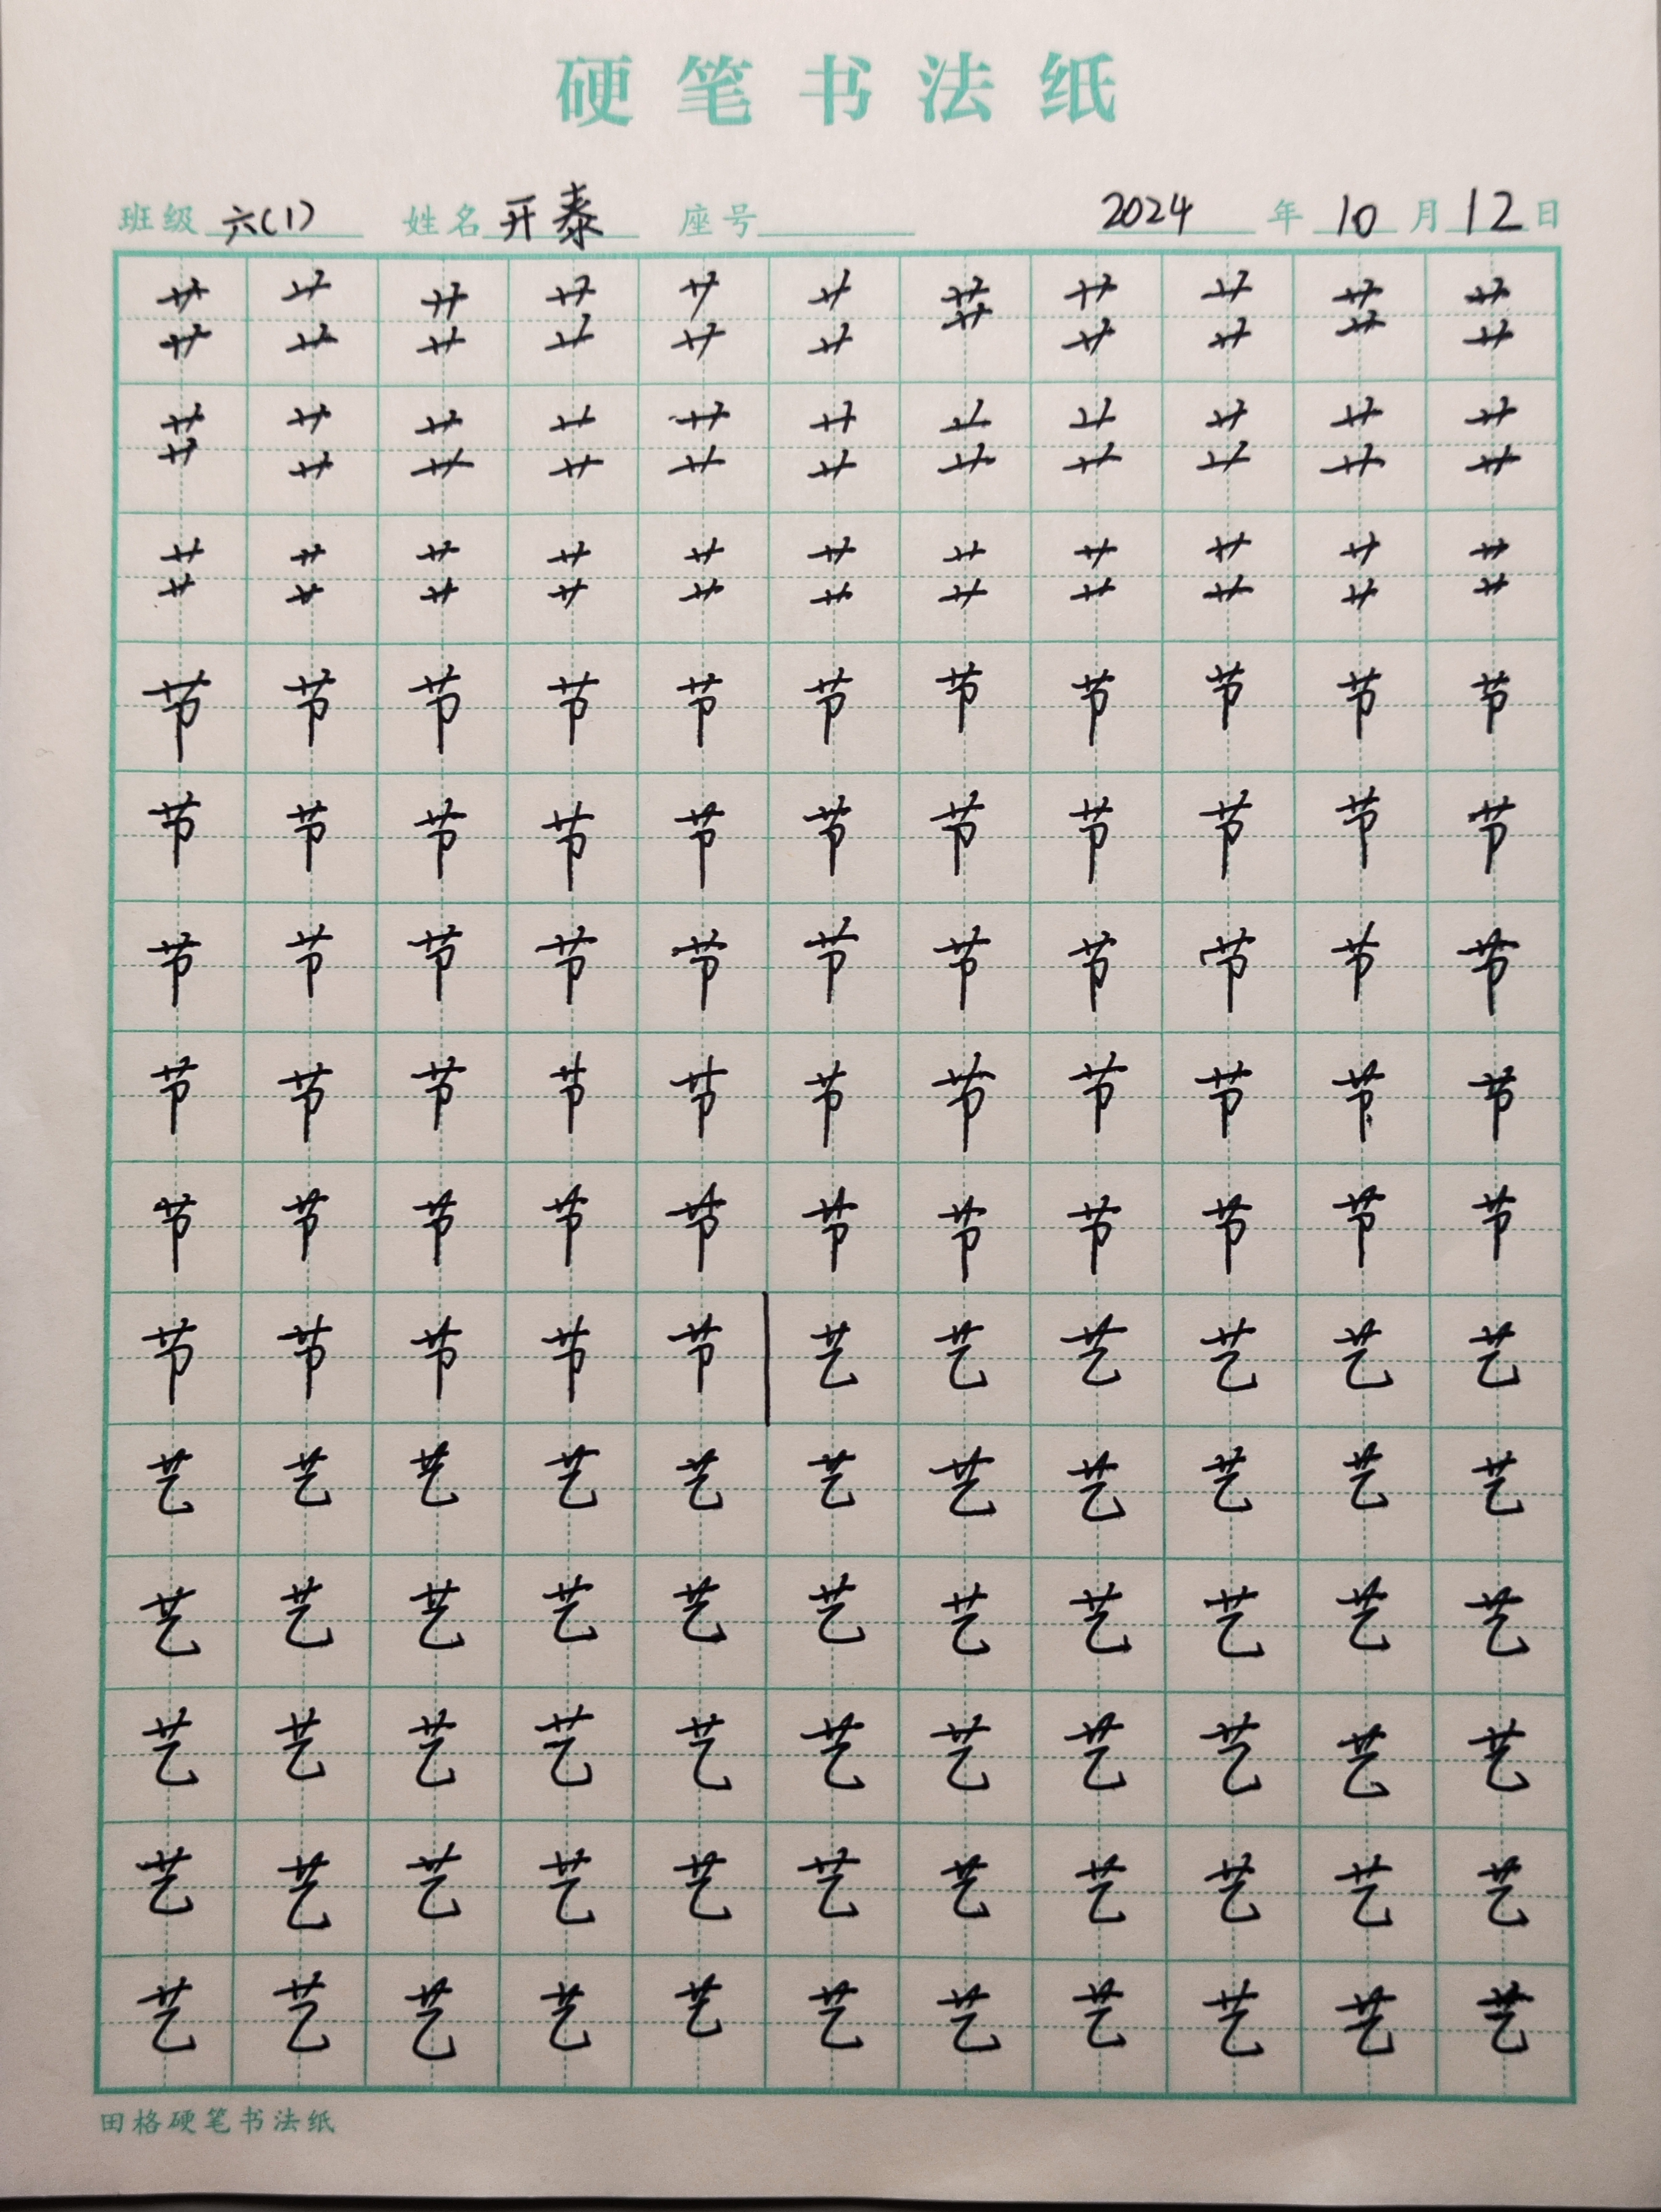 硬笔书法纸
班级 六(1) 姓名 开泰 座号 2024 年 10 月 12 日
艹 艹 艹 艹 艹 艹 艹 艹 艹 艹 艹
艹 艹 艹 艹 艹 艹 艹 艹 艹 艹 艹
艹 艹 艹 艹 艹 艹 艹 艹 艹 艹 艹
艹 艹 艹 艹 艹 艹 艹 艹 艹 艹 艹
艹 艹 艹 艹 艹 艹 艹 艹 艹 艹 艹
艹 艹 艹 艹 艹 艹 艹 艹 艹 艹 艹
节 节 节 节 节 节 节 节 节 节 节
节 节 节 节 节 节 节 节 节 节 节
节 节 节 节 节 节 节 节 节 节 节
节 节 节 节 节 节 节 节 节 节 节
节 节 节 节 节 节 节 节 节 节 节
节 节 节 节 节 艺 艺 艺 艺 艺 艺
艺 艺 艺 艺 艺 艺 艺 艺 艺 艺 艺
艺 艺 艺 艺 艺 艺 艺 艺 艺 艺 艺
艺 艺 艺 艺 艺 艺 艺 艺 艺 艺 艺
艺 艺 艺 艺 艺 艺 艺 艺 艺 艺 艺
艺 艺 艺 艺 艺 艺 艺 艺 艺 艺 艺
田格硬笔书法纸